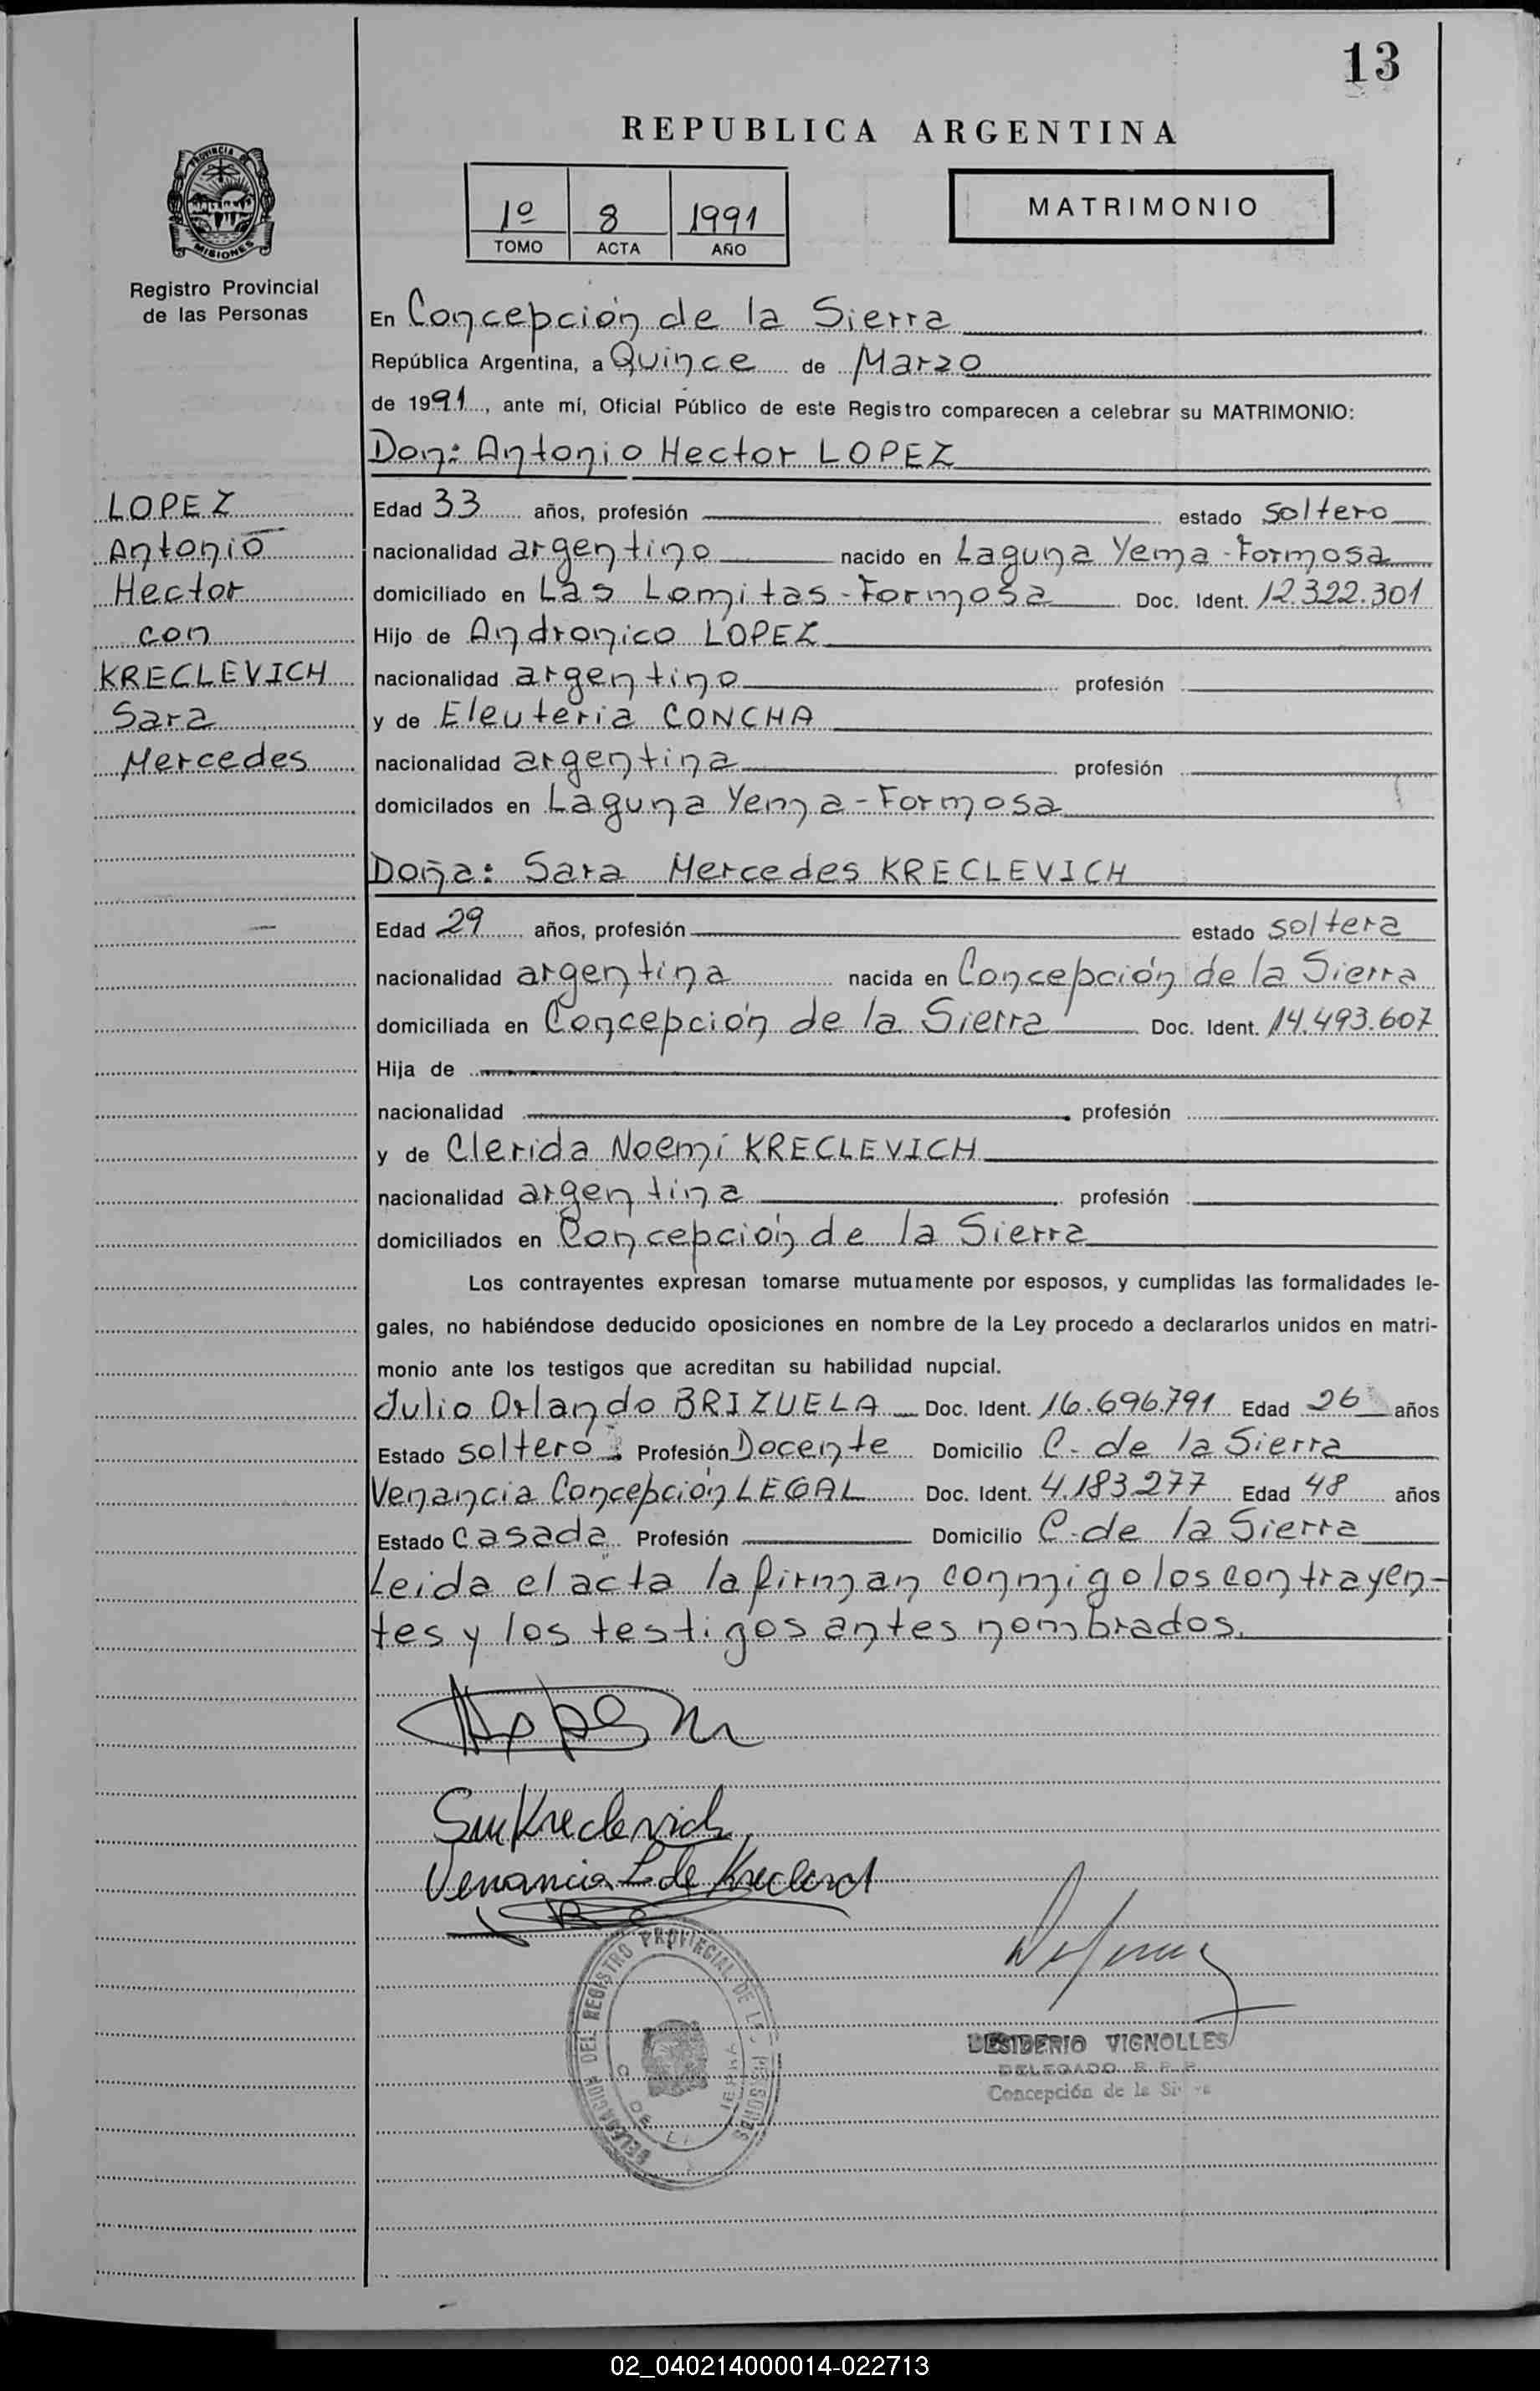 13
REPUBLICA ARGENTINA
PROVINCIA DE
MISIONES
Registro Provincial
de las Personas
1º 8 1991
TOMO ACTA AÑO
MATRIMONIO
En Concepción de la Sierra
República Argentina, a Quince de Marzo
de 1991, ante mí, Oficial Público de este Registro comparecen a celebrar su MATRIMONIO:
Don: Antonio Hector LOPEZ
LOPEZ
Antonio
Hector
con
KRECLEVICH
Sara
Mercedes
Edad 33 años, profesión estado soltero
nacionalidad argentino nacido en Laguna Yema - Formosa
domiciliado en Las Lomitas - Formosa Doc. Ident. 12.322.301
Hijo de Andronico LOPEZ
nacionalidad argentino profesión
y de Eleuteria CONCHA
nacionalidad argentina profesión
domicilados en Laguna Yema - Formosa
Doña: Sara Mercedes KRECLEVICH
Edad 29 años, profesión estado soltera
nacionalidad argentina nacida en Concepción de la Sierra
domiciliada en Concepción de la Sierra Doc. Ident. 14.493.607
Hija de
nacionalidad profesión
y de Clerida Noemí KRECLEVICH
nacionalidad argentina profesión
domiciliados en Concepción de la Sierra
Los contrayentes expresan tomarse mutuamente por esposos, y cumplidas las formalidades le-
gales, no habiéndose deducido oposiciones en nombre de la Ley procedo a declararlos unidos en matri-
monio ante los testigos que acreditan su habilidad nupcial.
Julio Orlando BRIZUELA Doc. Ident. 16.696.791 Edad 26 años
Estado soltero Profesión Docente Domicilio C. de la Sierra
Venancia Concepción LEGAL Doc. Ident. 4.183.277 Edad 48 años
Estado casada Profesión Domicilio C. de la Sierra
Leida el acta la firman conmigo los contrayen-
tes y los testigos antes nombrados.
SMKreclevich
Venancia L. de Kreclevich
DELEGACION DEL REGISTRO PROVINCIAL DE LAS PERSONAS
DESIDERIO VIGNOLLES
DELEGADO R. P. P.
Concepción de la Sierra
02_040214000014-022713